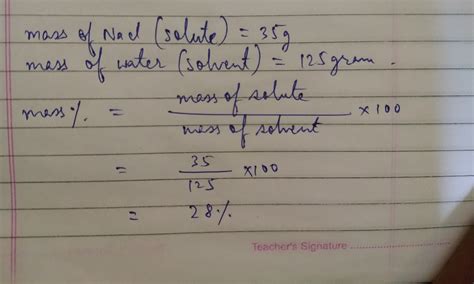 mass of Nacl (solute) = 35g
mass of water (solvent) = 125gram.
mass%. = mass of solute / mass of solvent × 100
= 35 / 125 ×100
= 28%.
Teacher's Signature ........................